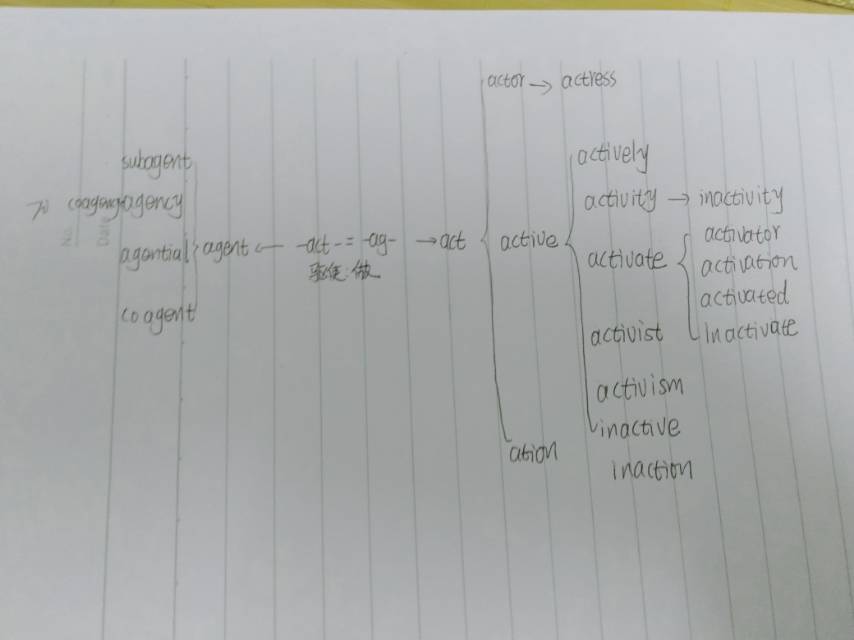 actor → actress
subagent
actively
coagency agency
activity → inactivity
agential agent ← -act- = -ag- → act active activate activator
驱使 做
activation
activated
coagent
activist inactivate
activism
inactive
ation
inaction
No.
Date